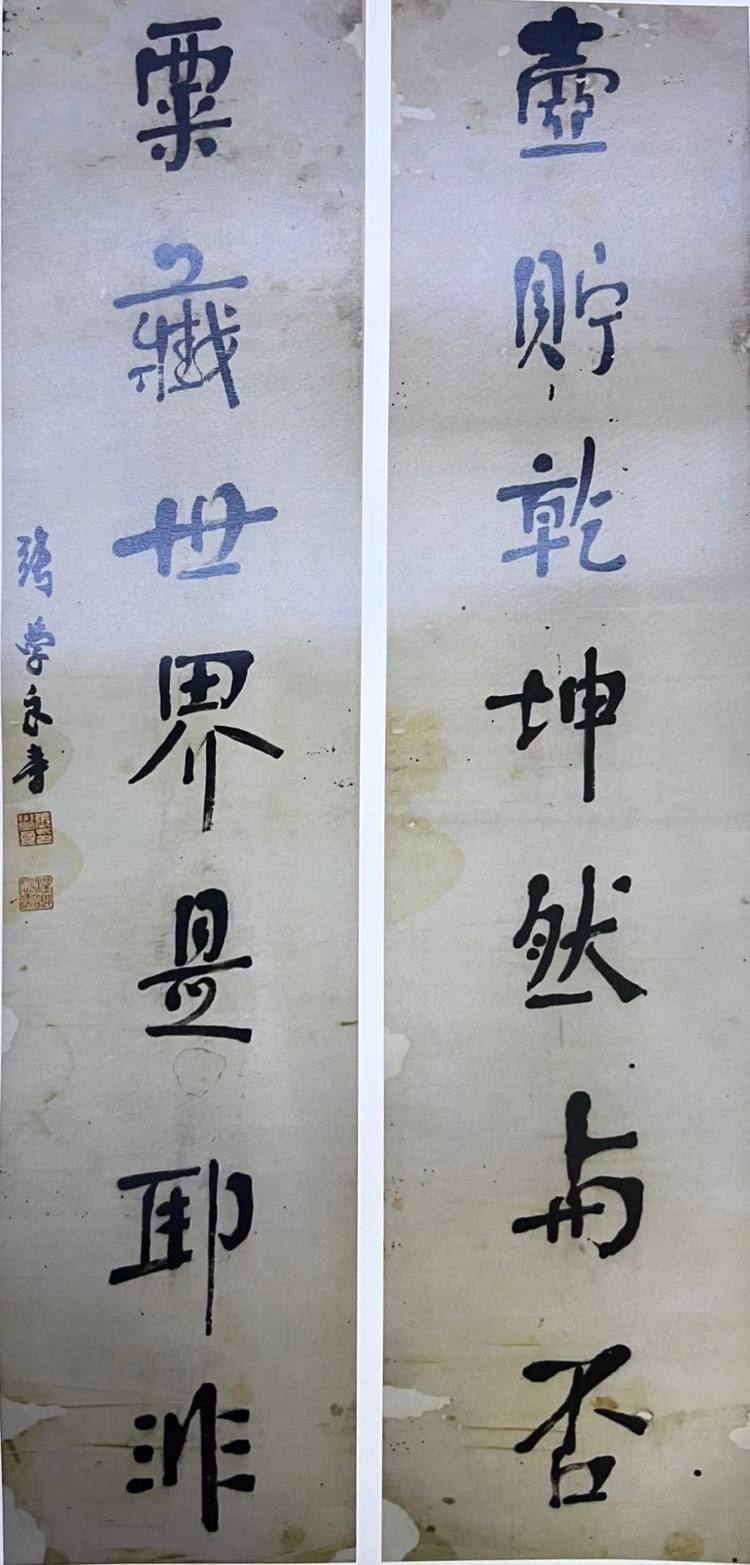 壺貯乾坤然与否
粟藏世界是耶非
張學良書